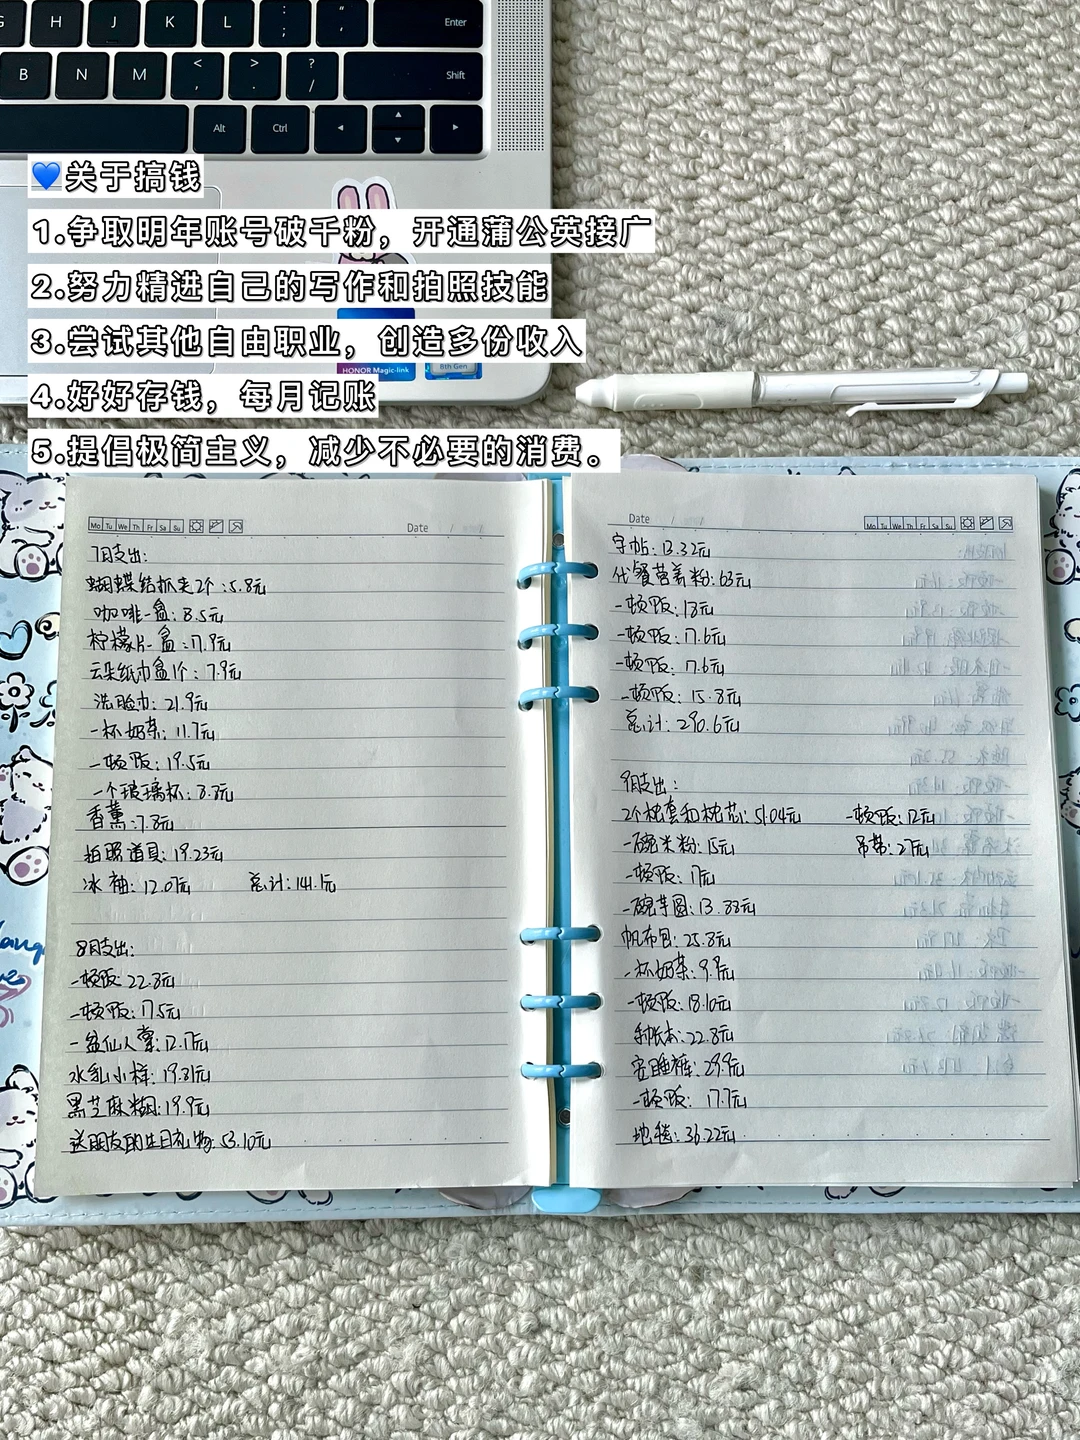 G H J K L : ; " ' Enter
B N M < , > . ? / Shift
Alt Ctrl
💙关于搞钱
1.争取明年账号破千粉，开通蒲公英接广
2.努力精进自己的写作和拍照技能
3.尝试其他自由职业，创造多份收入
HONOR Magic-link 8th Gen
4.好好存钱，每月记账
5.提倡极简主义，减少不必要的消费。
Mo Tu We Th Fr Sa Su Date / /
7月支出:
蝴蝶结抓夹2个:5.8元
咖啡一盒:8.5元
柠檬片一盒:7.9元
云朵纸巾盒1个:7.9元
洗脸巾:21.9元
一杯奶茶:11.7元
一顿饭:19.5元
一个玻璃杯:8.8元
香薰:7.8元
拍照道具:19.23元
冰袖:12.07元 总计:141.1元
8月支出:
一顿饭:22.8元
一顿饭:17.5元
一盆仙人掌:12.17元
水乳小样:19.31元
黑芝麻糊:19.9元
送朋友的生日礼物:53.10元
Date / / Mo Tu We Th Fr Sa Su
字帖:13.32元
代餐营养粉:63元
一顿饭:18元
一顿饭:17.6元
一顿饭:17.6元
一顿饭:15.8元
总计:290.6元
9月支出:
2个枕套和枕芯:51.04元 一顿饭:12元
一碗米粉:15元 吊带:27元
一顿饭:17元
一碗芋圆:13.88元
帆布包:25.8元
一杯奶茶:9.9元
一顿饭:18.10元
手帐本:22.8元
睡裤:29.9元
一顿饭:17.7元
地毯:36.22元